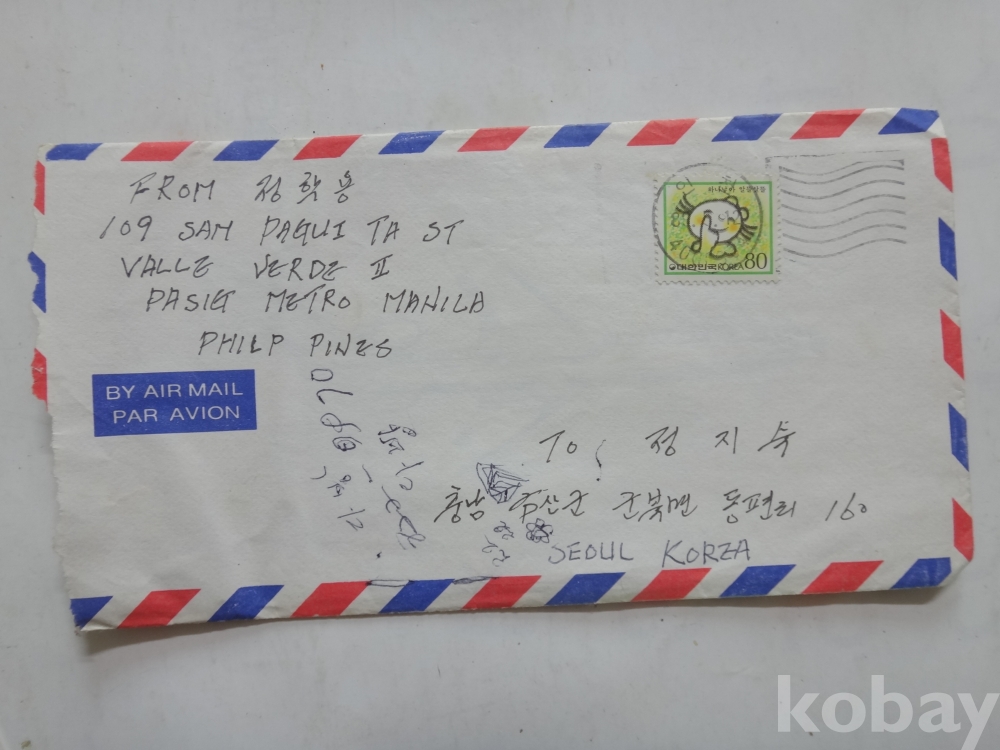 FROM 정학용
109 SAN PAQUI TA ST
VALLE VERDE II
PASIG METRO MANILA
PHILP PINES
BY AIR MAIL
PAR AVION
대한민국 KOREA 80
TO; 정지숙
충남 군북면 동편리 160
SEOUL KOREA
kobay